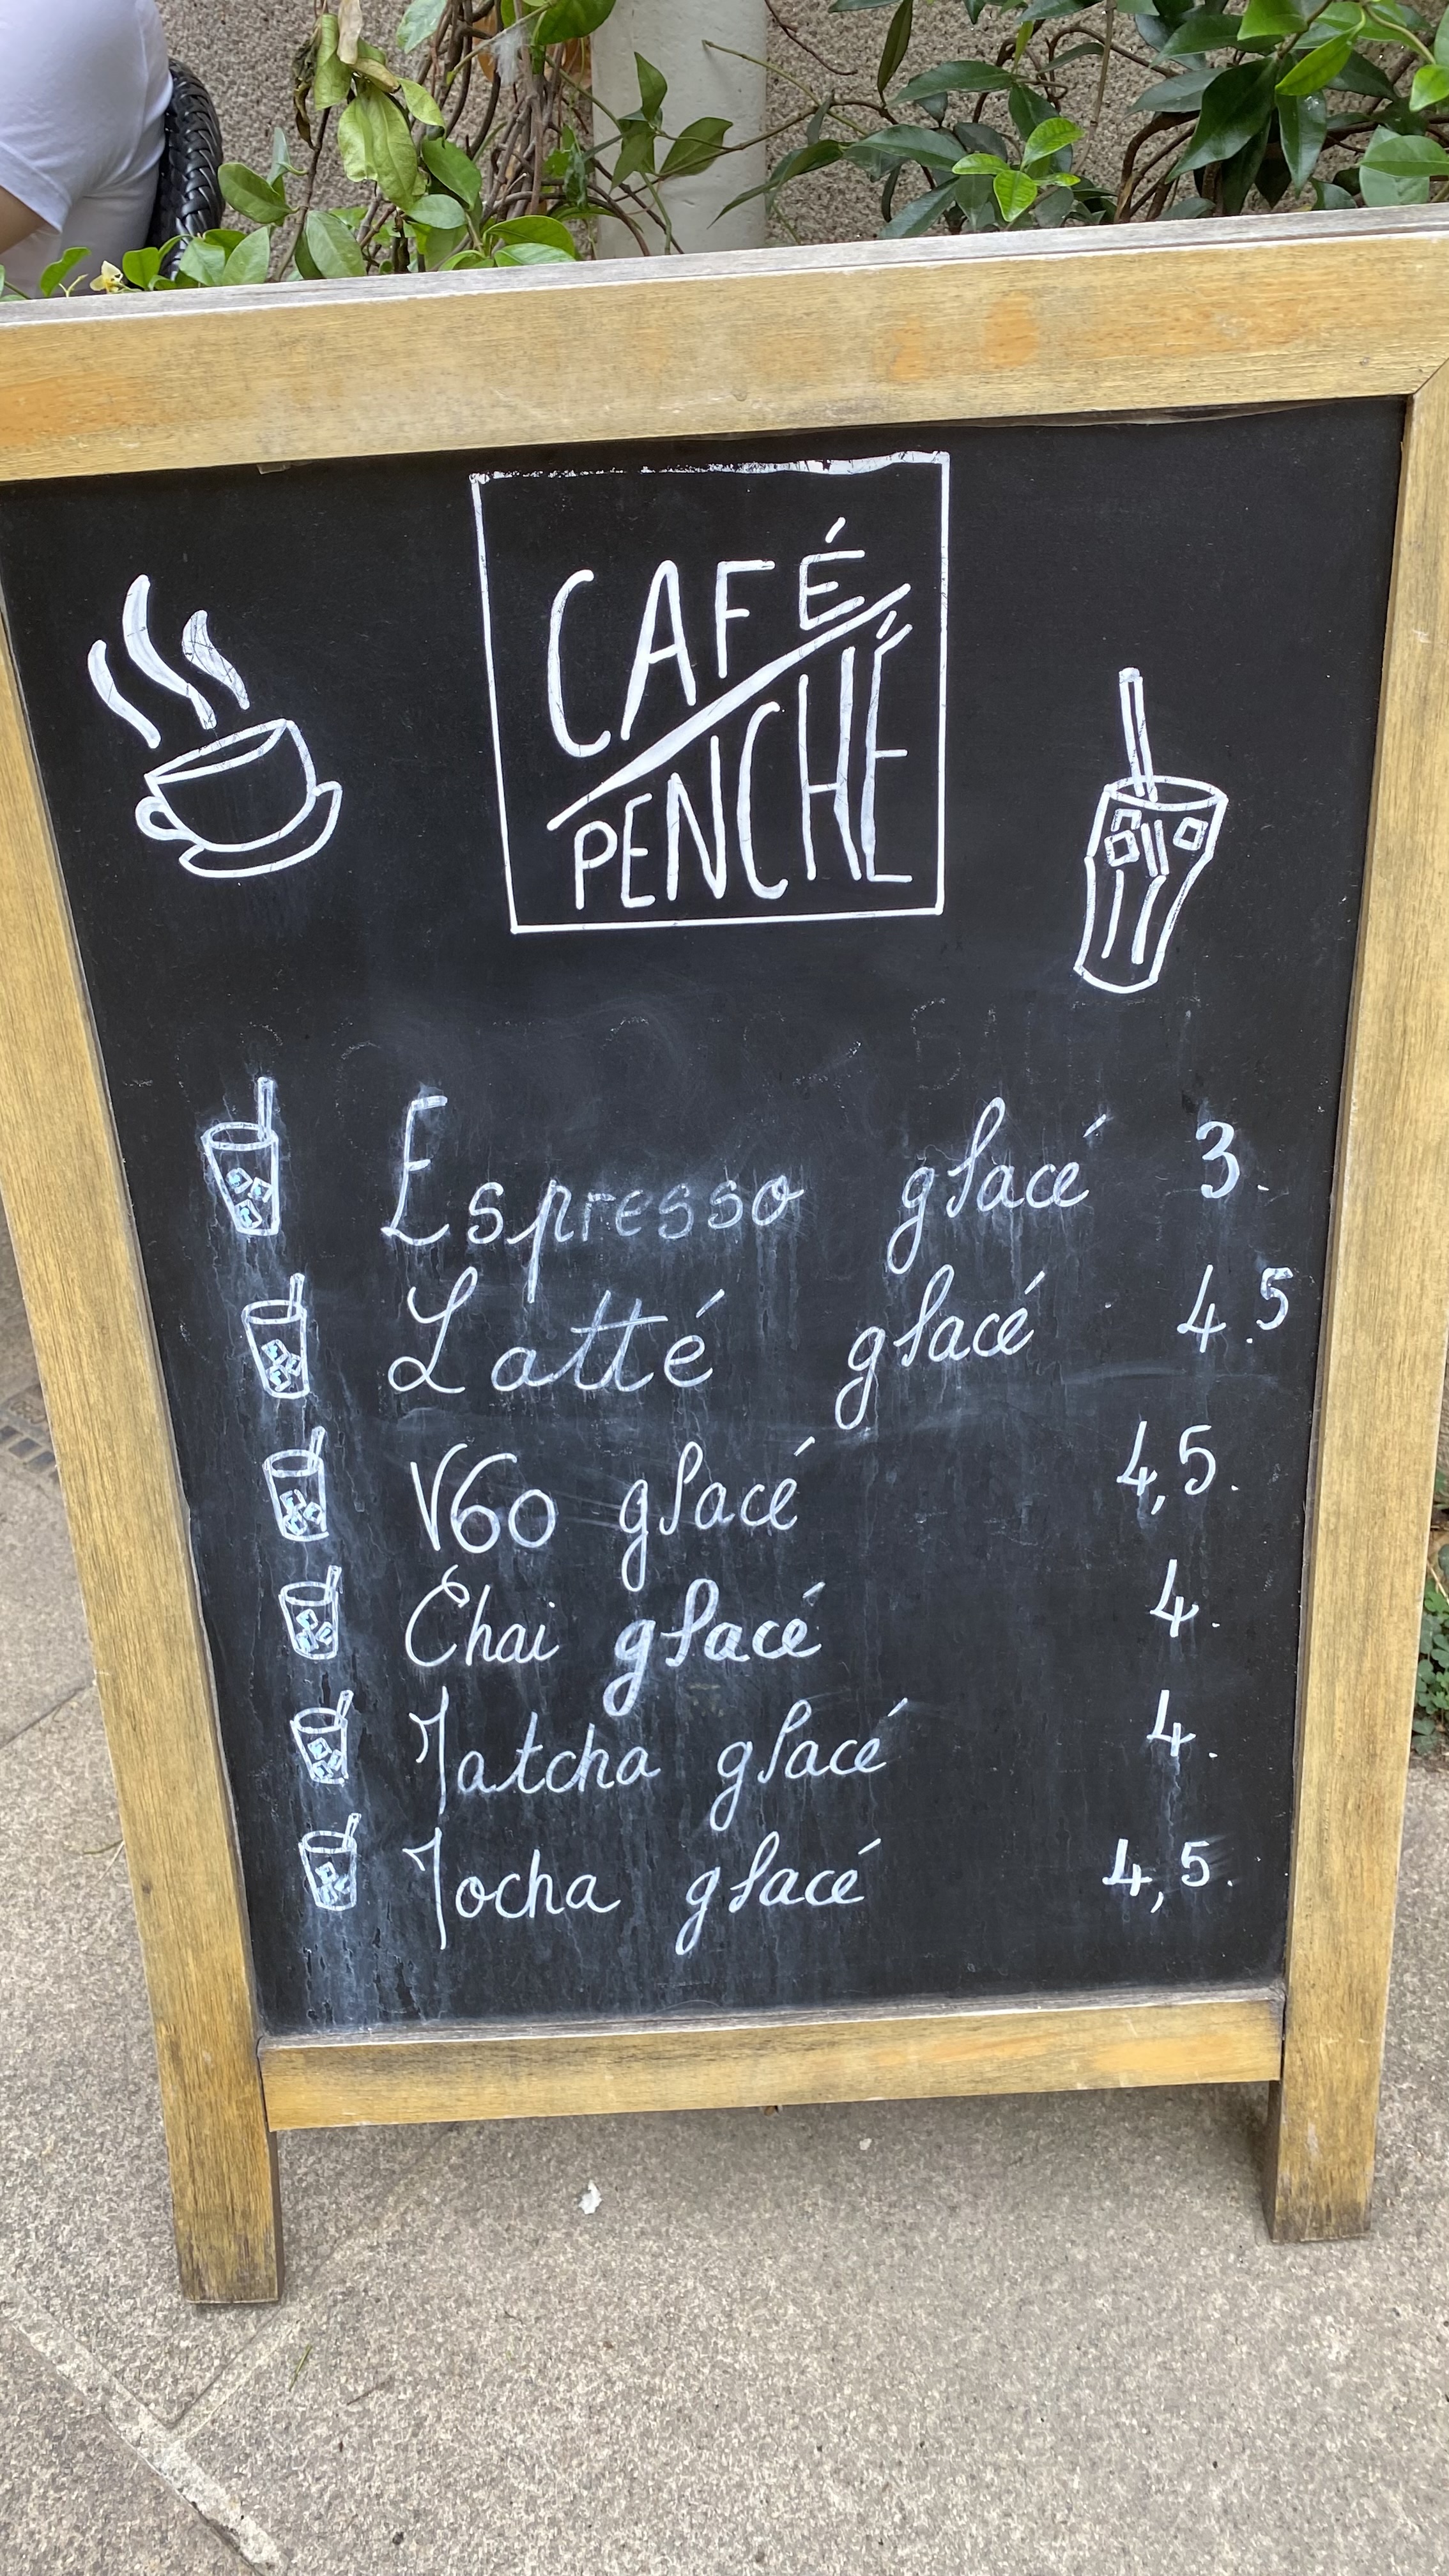 CAFÉ
PENCHÉ
Espresso glacé 3.
Latté glacé 4.5
V60 glacé 4,5.
Chai glacé 4.
Matcha glacé 4.
Mocha glacé 4,5.